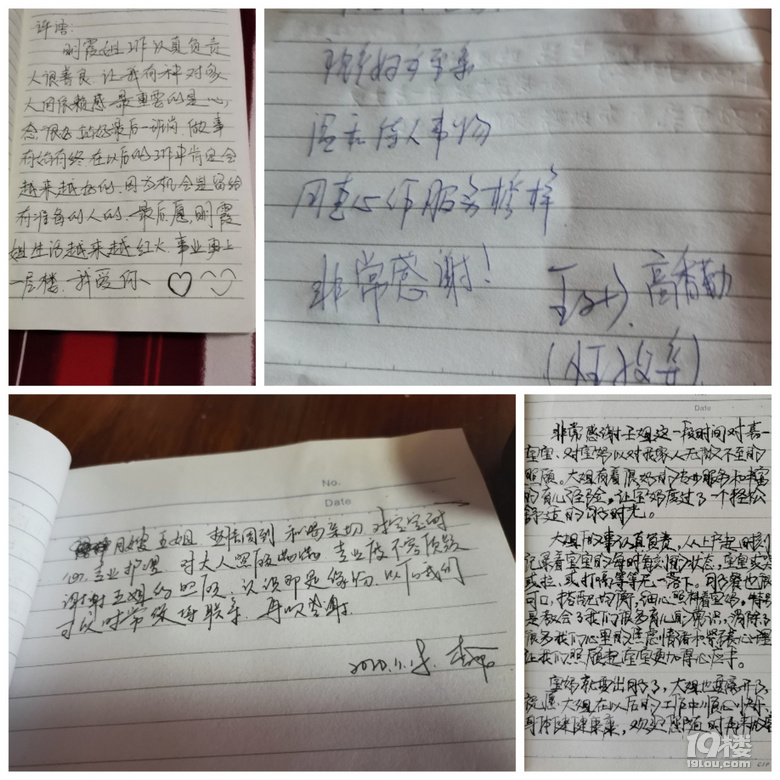 评语:
明霞姐工作认真负责
人很善良.让我有种对家
人的依赖感.最重要的是心
态很好.站好最后一班岗.做事
有始有终.在以后的工作中肯定会
越来越好的.因为机会是留给
有准备的人的.最后愿,明霞
姐生活越来越红火.事业更上
一层楼.我爱你、♡
温和待人事物
用真心作服务榜样
非常感谢!
高香勤
No.
Date
月嫂王姐 和蔼亲切 对宝宝耐
心 专业护理 对大人照顾 专业度不容质疑
谢谢王姐的照顾 认识即是缘份 以后我们
可以时常保持联系 再次感谢
2020.11.15
Date
非常感谢王姐这一段时间对喜
宝宝、对宝妈以及对我家人无微不至的
照顾。大姐有着很好的专业服务和丰富
的育儿经验,让宝妈度过了一个轻松
舒适的月子时光。
大姐做事认真负责,从上户起时刻
记录着宝宝的每时每刻的状态,宝宝或哭
或拉,或打嗝等等无一落下。月子餐也很
可口,搭配均衡,细心照料着宝妈,特别
是教会了我们很多育儿的常识,消除了
很多我们心里的焦虑情绪和紧张心理
让我们照顾起宝宝更加得心应手。
宝妈就要出月子了,大姐也要离开了,
祝愿大姐在以后的工作中顺心顺利,
身体健健康康,欢迎随时再来
19楼
19lou.com